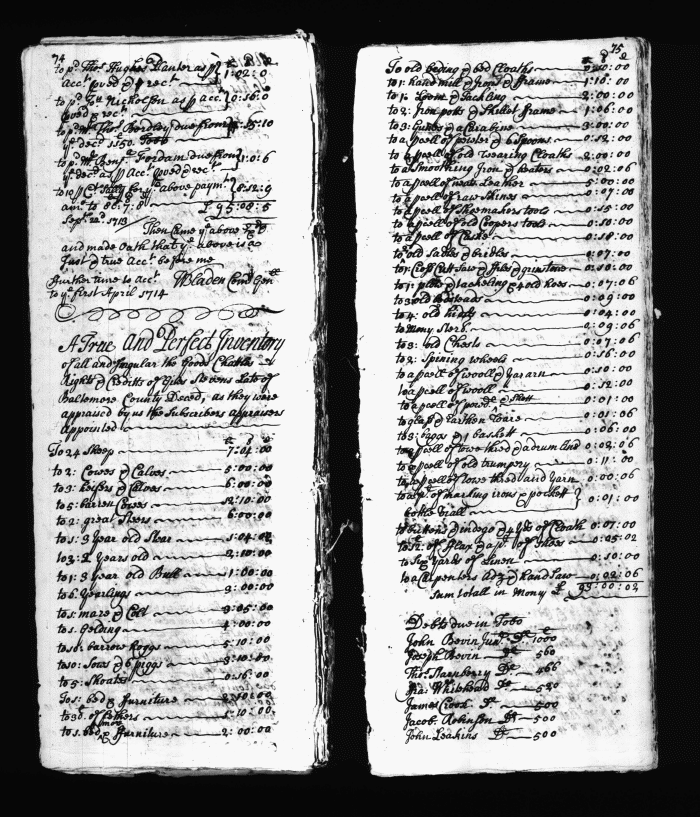 74
to pd. Thos. Hughes Planter as pr
Acct. proved & rect. 1:02:0
to pd. Jo. Nicholson as pr acct. 0:16:0
proved & rect.
to pd. Mr. Thos. Bordley due from
ye decd. 1150. Tobo
to pd. Mr. Benj. Fordam due from 1:0:6
ye decd. as pr Acct. proved & rect.
to 10 pr Ct. Sallry for ye above paymt. 8:12:9
amt. to 86:7:8 £ 95:00:5
Septr. 22d. 1713
Then Came ye above
and made Oath that ye above is a
Just & true Acct. before me
further time to Acct. Wbladen Com Gen
to ye first April 1714
A True and Perfect Inventory
of all and Singular the Goods Chattles
Rights & Creditts of Giles Stevens Late of
Baltemore County Deced, as they were
appraised by us the Subscribers appraisers
appointed
To 24 Sheep 7:04:00
to 2: Cowes & Calves 5:00:00
to 3: heifers & Calves 6:00:00
to 5: barren Cowes 12:10:00
to 2: great Steers 6:00:00
to 1: 3 year old Stear 1:04:00
to 2: 2 Years old 2:10:00
to 1: 3 year old Bull 1:00:00
to 6: Yearlings 3:00:00
to 1: mare & Colt 3:05:00
to 1: Gelding 4:00:00
to 10: barrow hoggs 5:10:00
to 10: Sows & 6 piggs 3:10:00
to 5: Shoates 0:16:00
To 1: bed & furniture
of fethers 1:10:00
to 1. bed & furniture 2:00:00
75
To old beding & bed Cloaths 0:10:00
to 1: hand mill & Irons & frame 1:10:00
to 1: Loom & Tackling 2:00:00
to 2: Iron potts & Skillet frame 1:06:00
to 3: Gunes & a Carabine 3:00:00
to a pcell of pewter & 6 Spoons 0:12:00
to a pcell of old Wearing Cloaths 2:00:00
to a Smoothing Iron & heaters 0:02:06
to a pcell of neat Leather 5:00:00
to a pcell of raw Skines 0:07:00
to a pcell of Shoemakers tools 0:15:00
to a pcell of old Coopers tools 0:10:00
to a pcell of Caske 0:18:00
to old Sadles & bridles 0:07:00
to 1: Cross Cutt Saw & files & grinstone 0:10:00
to 1: plow & tackeling & 4 old hoes 0:07:06
to 3 old bedsteads 0:09:00
to 4: old 0:04:00
to Mony Sterl. 0:09:06
to 3: old Chests 0:07:06
to 2: Spining wheels 0:16:00
to a pcell of wooll & yaran 0:10:00
to a pcell of wooll 0:12:00
to a pcell of powdr. & Shott 0:01:00
to glass & Earthen Ware 0:01:06
to 3: baggs & 1 baskett 0:06:00
to a pcell of tow thred & a drum lind 0:02:06
to a pcell of old trumpery 0:11:00
to a pcell of towe thred and Yarn 0:00:06
to a pr. of harling irons & pockett 0:01:00
bottle
to buttons & indego & 4 yds of Cloath 0:07:00
to 12: of flax & a pr. of Shoes 0:05:02
to Six Yards of Linen 0:10:00
to a Carpenters Adz & hand Saw 0:02:06
Sum totall in Mony £ 93:00:02
Debts due in Tobo
John Bevin Junr. Dr. 1000
Joseph Bevin Dr. 560
Tho: Starnberry Dr. 466
Fra: Whitehead Dr. 520
James Crook Dr. 500
Jacob Robinson Dr. 500
John Leakins Dr. 500